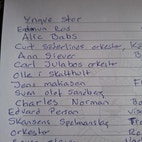 Yngve Stor
Edmund Ros
Alice Babs
Curt Söderlinds orkester,
Ann Siever
Carl Jularbos orkester
Olle i Skatthult
Jens makason
Sven Olof Sandberg
Charles Norman Bo
Edvard Person vis
Skansens Spelmanslag Tr
orkester